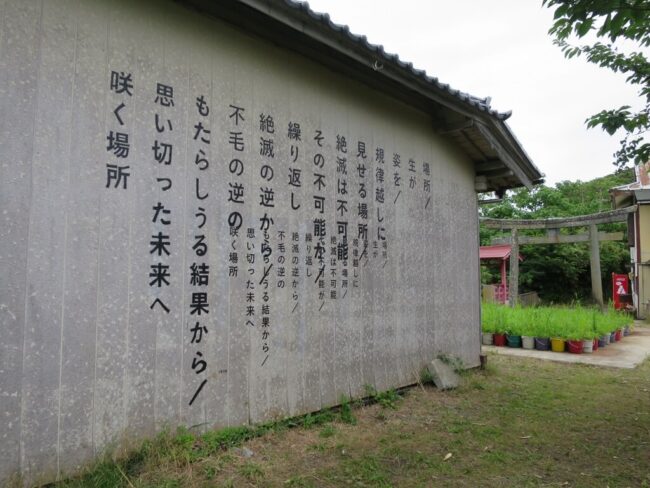 場所/
生が
姿を/
規律越しに
見せる場所/
絶滅は不可能
その不可能が
繰り返し
絶滅の逆から/
不毛の逆の
もたらしうる結果から/
思い切った未来へ
咲く場所
場所/
生が
規律越しに
場所/
絶滅は不可能
不可能が/
繰り返し
絶滅の逆から/
不毛の逆の
もたらしうる結果から/
思い切った未来へ
咲く場所